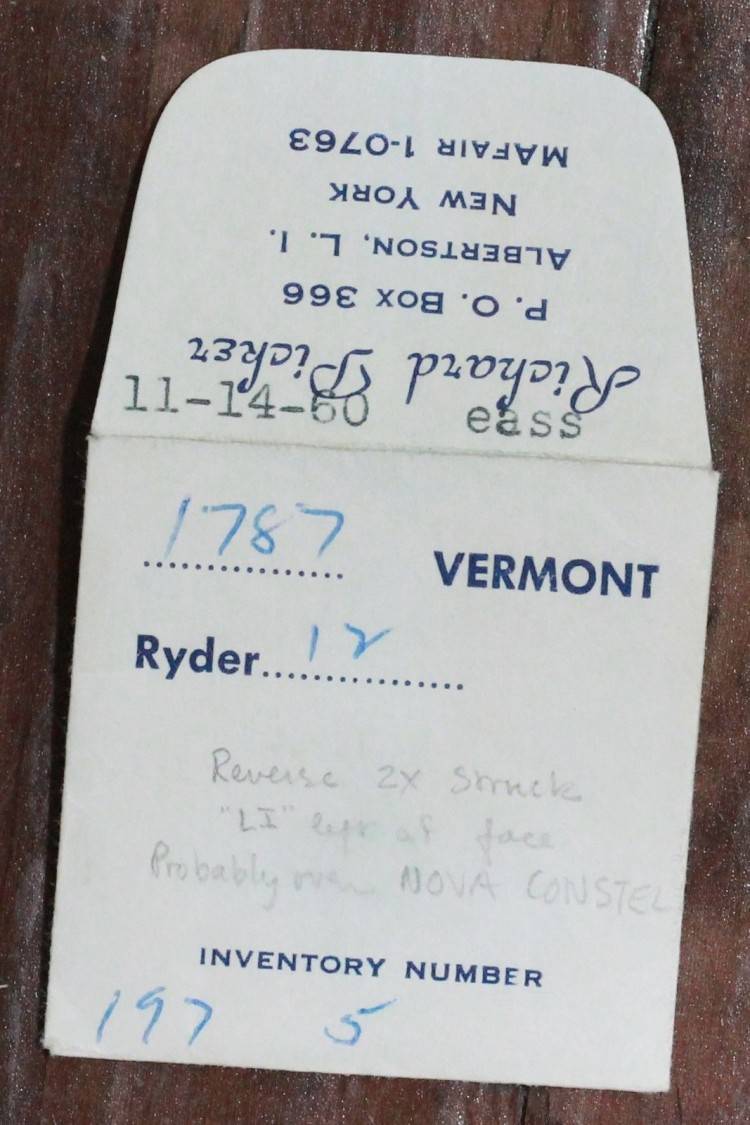 Richard Picker
P. O. Box 366
ALBERTSON, L. I.
NEW YORK
MAFAIR 1-0763
11-14-60 eass
1787 VERMONT
Ryder 12
Reverse 2X Struck
"LI" left of face
Probably over NOVA CONSTEL
INVENTORY NUMBER
197 5